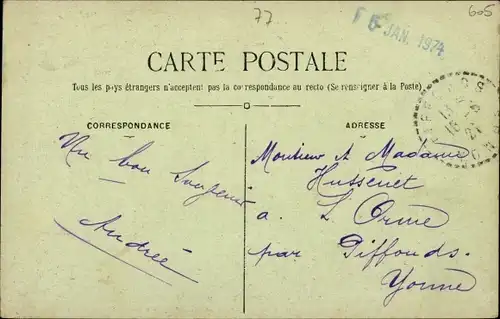 77
605
5 JAN. 1974
CARTE POSTALE
Tous les pays étrangers n'acceptent pas la correspondance au recto (Se renseigner à la Poste)
CORRESPONDANCE
ADRESSE
Un bon
Andrée
Monsieur et Madame
Hussenet
à L'Orme
par Piffonds.
Yonne